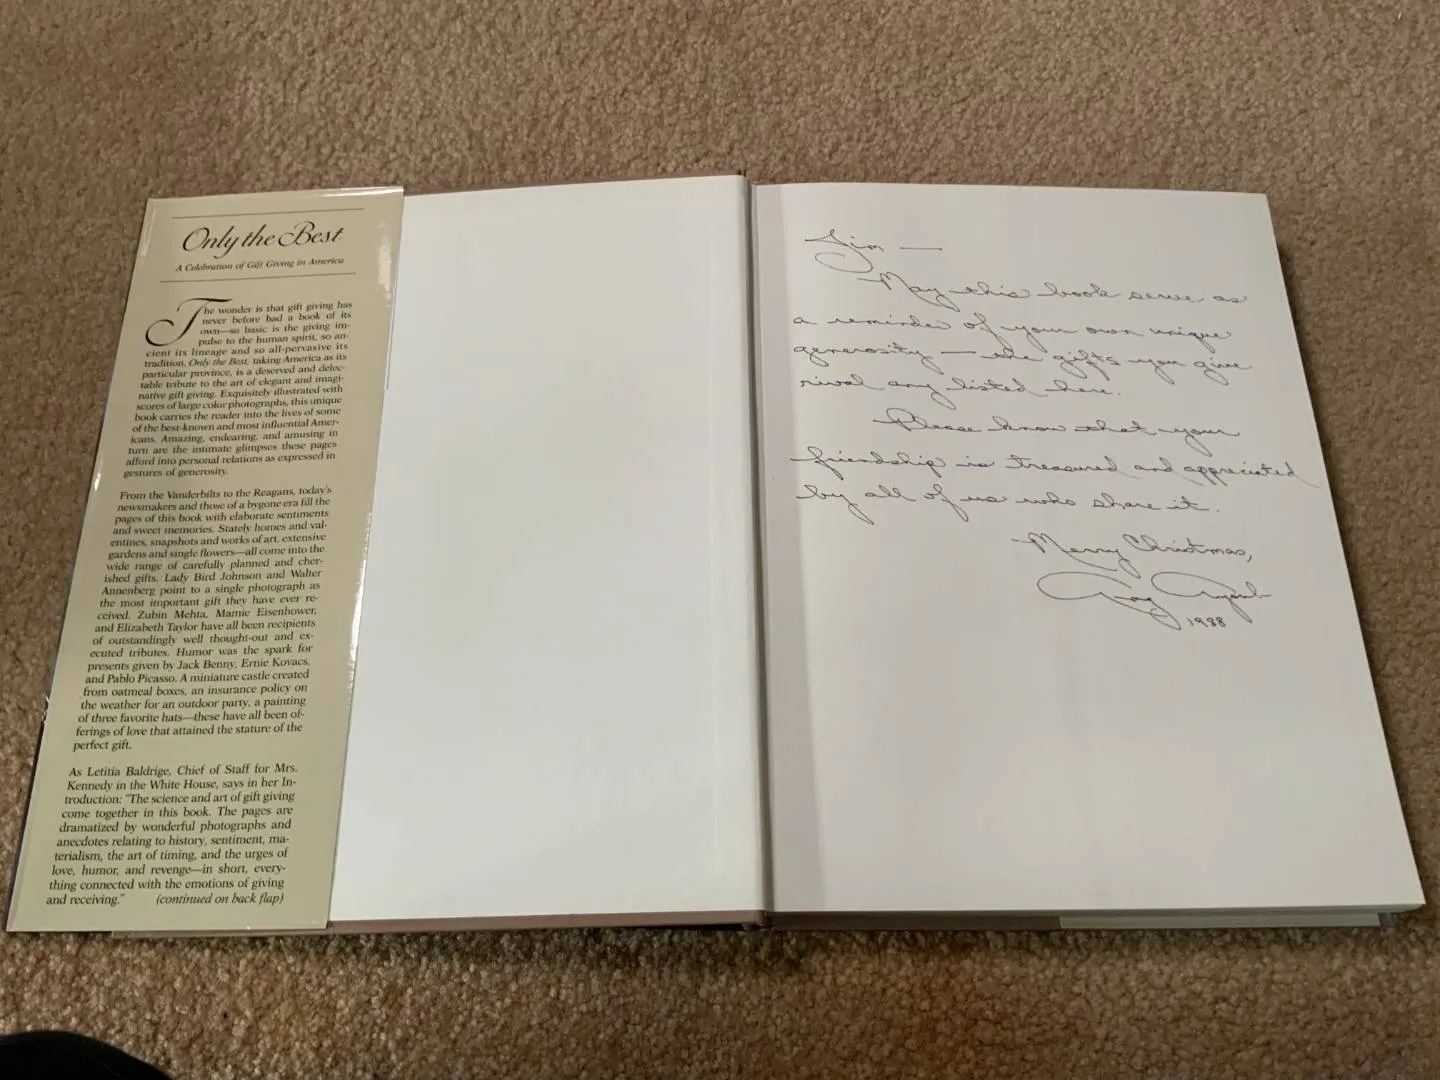 Only the Best
A Celebration of Gift Giving in America
The wonder is that gift giving has
never before had a book of its
own—so basic is the giving im-
pulse to the human spirit, so an-
cient its lineage and so all-pervasive its
tradition. Only the Best, taking America as its
particular province, is a deserved and delec-
table tribute to the art of elegant and imagi-
native gift giving. Exquisitely illustrated with
scores of large color photographs, this unique
book carries the reader into the lives of some
of the best-known and most influential Amer-
icans. Amazing, endearing, and amusing in
turn are the intimate glimpses these pages
afford into personal relations as expressed in
gestures of generosity.
From the Vanderbilts to the Reagans, today's
newsmakers and those of a bygone era fill the
pages of this book with elaborate sentiments
and sweet memories. Stately homes and val-
entines, snapshots and works of art, extensive
gardens and single flowers—all come into the
wide range of carefully planned and cher-
ished gifts. Lady Bird Johnson and Walter
Annenberg point to a single photograph as
the most important gift they have ever re-
ceived. Zubin Mehta, Mamie Eisenhower,
and Elizabeth Taylor have all been recipients
of outstandingly well thought-out and ex-
ecuted tributes. Humor was the spark for
presents given by Jack Benny, Ernie Kovacs,
and Pablo Picasso. A miniature castle created
from oatmeal boxes, an insurance policy on
the weather for an outdoor party, a painting
of three favorite hats—these have all been of-
ferings of love that attained the stature of the
perfect gift.
As Letitia Baldrige, Chief of Staff for Mrs.
Kennedy in the White House, says in her In-
troduction: "The science and art of gift giving
come together in this book. The pages are
dramatized by wonderful photographs and
anecdotes relating to history, sentiment, ma-
terialism, the art of timing, and the urges of
love, humor, and revenge—in short, every-
thing connected with the emotions of giving
and receiving." (continued on back flap)
Jim —
May this book serve as
a reminder of your own unique
generosity — the gifts you give
rival any listed here.
Please know that your
friendship is treasured and appreciated
by all of us who share it.
Merry Christmas,
1988